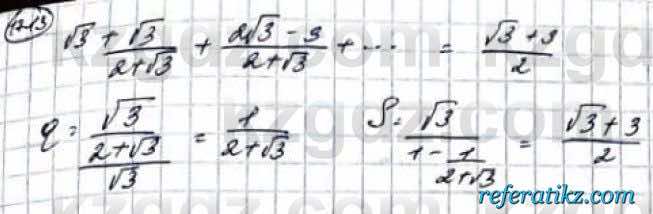 1213 √3 + √3/(2+√3) + (2√3 - 3)/(2+√3) + ... = (√3 + 3)/2
q = (√3/(2+√3))/√3 = 1/(2+√3) S = √3/(1 - 1/(2+√3)) = (√3 + 3)/2
referatikz.com